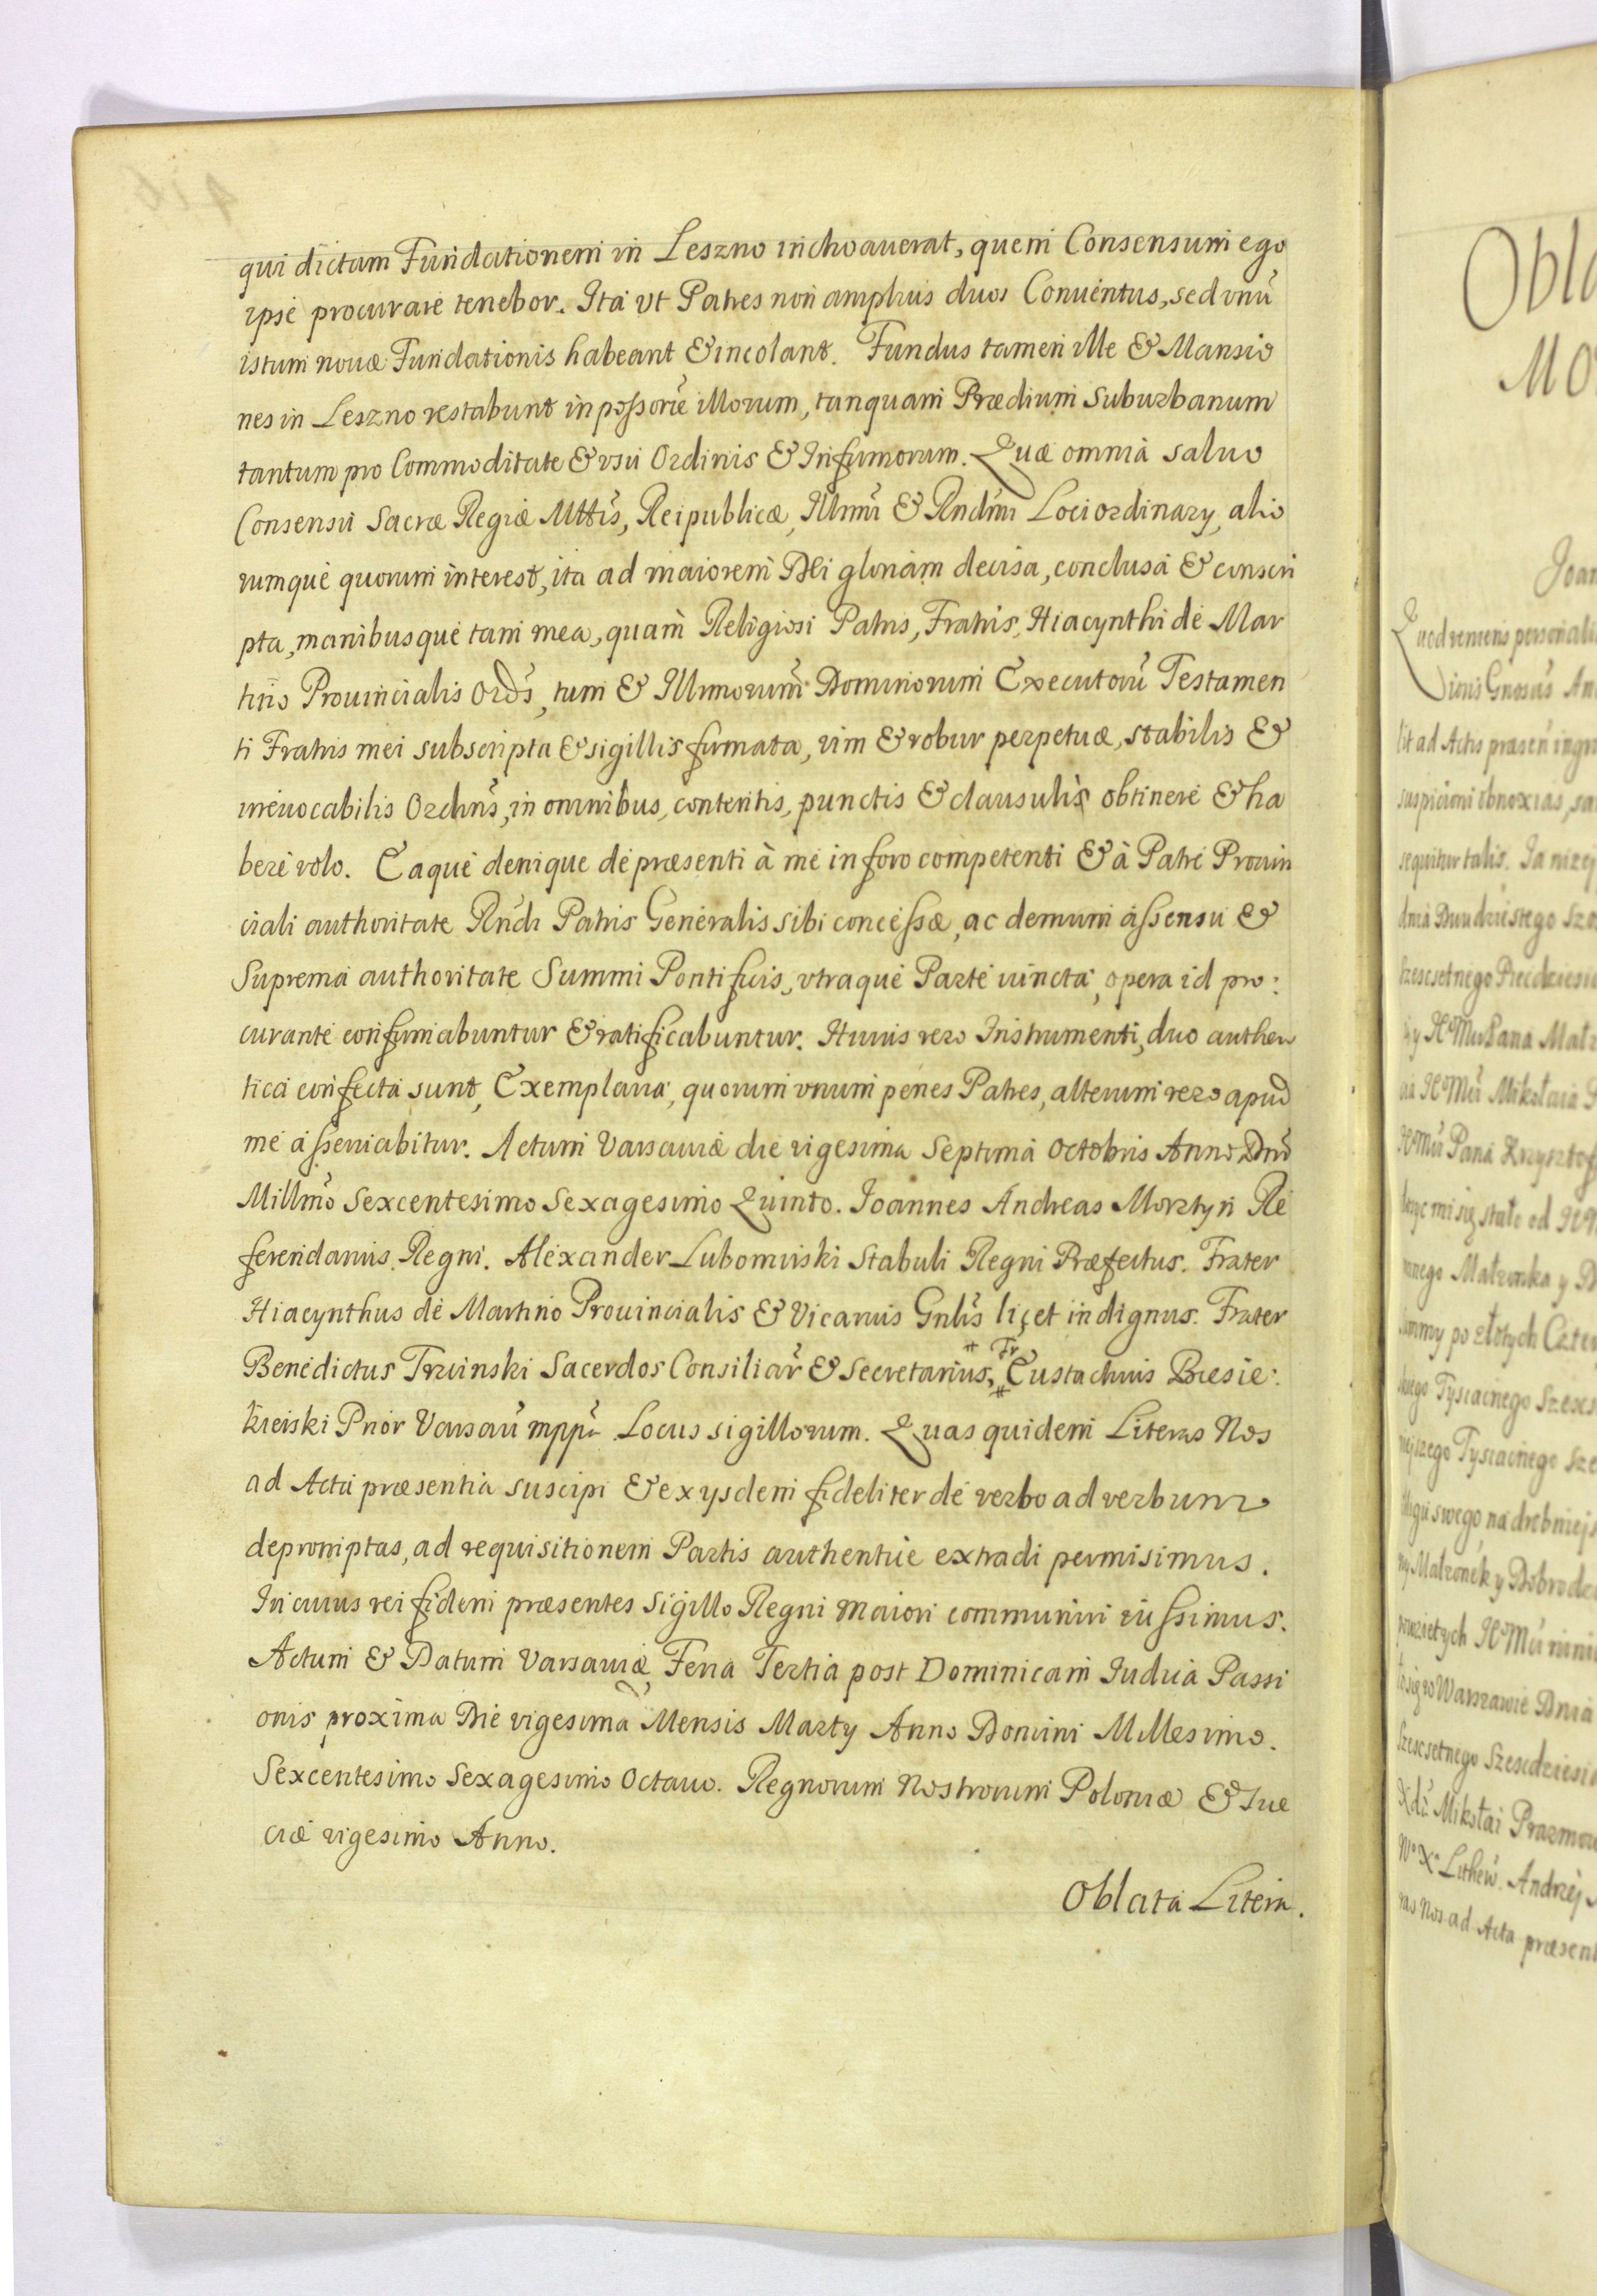 qui dictam Fundationem in Leszno inchoauerat, quem Consensum ego
ipse procurare tenebor. Ita vt Patres non amplius duos Conuentus, sed vnū
istum nouæ Fundationis habeant & incolant. Fundus tamen ille & Mansio
nes in Leszno restabunt in possorie illorum, tanquam Prædium Suburbanum
tantum pro Commoditate & vsu Ordinis & Infirmorum. Quæ omnia saluo
Consensu Sacræ Regiæ Mttis, Reipublicæ, Illmi & Rndmi Loci ordinary, alio
rumque quorum interest, ita ad maiorem Dei gloriam decisa, conclusa & conscri
pta, manibusque tam mea, quam Religiosi Patris, Fratris, Hiacynthi de Mar
tino Prouincialis Ords, tum & Illmorum Dominorum Executorū Testamen
ti Fratris mei subscripta & sigillis firmata, vim & robur perpetuæ, stabilis &
irreuocabilis Ordnis, in omnibus, contentis, punctis & clausulis obtinere & ha
bere volo. Eaque denique de præsenti à me in foro competenti & à Patre Prouin
ciali authoritate Rndi Patris Generalis sibi concessæ, ac demum assensu &
Suprema authoritate Summi Pontificis, vtraque Parte iuncta, opera id pro:
curante confirmabuntur & ratificabuntur. Huius vero Instrumenti, duo authen
tica confecta sunt, Exemplaria, quorum vnum penes Patres, alterum vero apud
me asseruabitur. Actum Varsauiæ die vigesima Septima Octobris Anno Dni
Millmo Sexcentesimo Sexagesimo Quinto. Joannes Andreas Morztyn Re
ferendarius Regni. Alexander Lubomirski Stabuli Regni Præfectus. Frater
Hiacynthus de Martino Prouincialis & Vicarius Gnlis licet indignus. Frater
Benedictus Trzinski Sacerdos Consiliar & Secretarius, Fr Eustachius Bresie:
kierski Prior Varsau mpp Locus sigillorum. Quas quidem Literas Nos
ad Acta præsentia suscipi & exysdem fideliter de verbo ad verbum
depromptas, ad requisitionem Partis authentice extradi permisimus.
In cuius rei fidem præsentes Sigillo Regni Maiori communiri iussimus.
Actum & Datum Varsauiæ, Feria Tertia post Dominicam Iudica Passi
onis proxima Die vigesima Mensis Marty Anno Domini Millesimo.
Sexcentesimo Sexagesimo Octauo. Regnorum Nostrorum Poloniæ & Sue
ciæ vigesimo Anno.
Oblata Litera.
Obla
Mo
Joan
Quod veniens personali
lit ad Acta præsen ingro
suspicioni obnoxias, sa
sequitur talis. Ja nizej